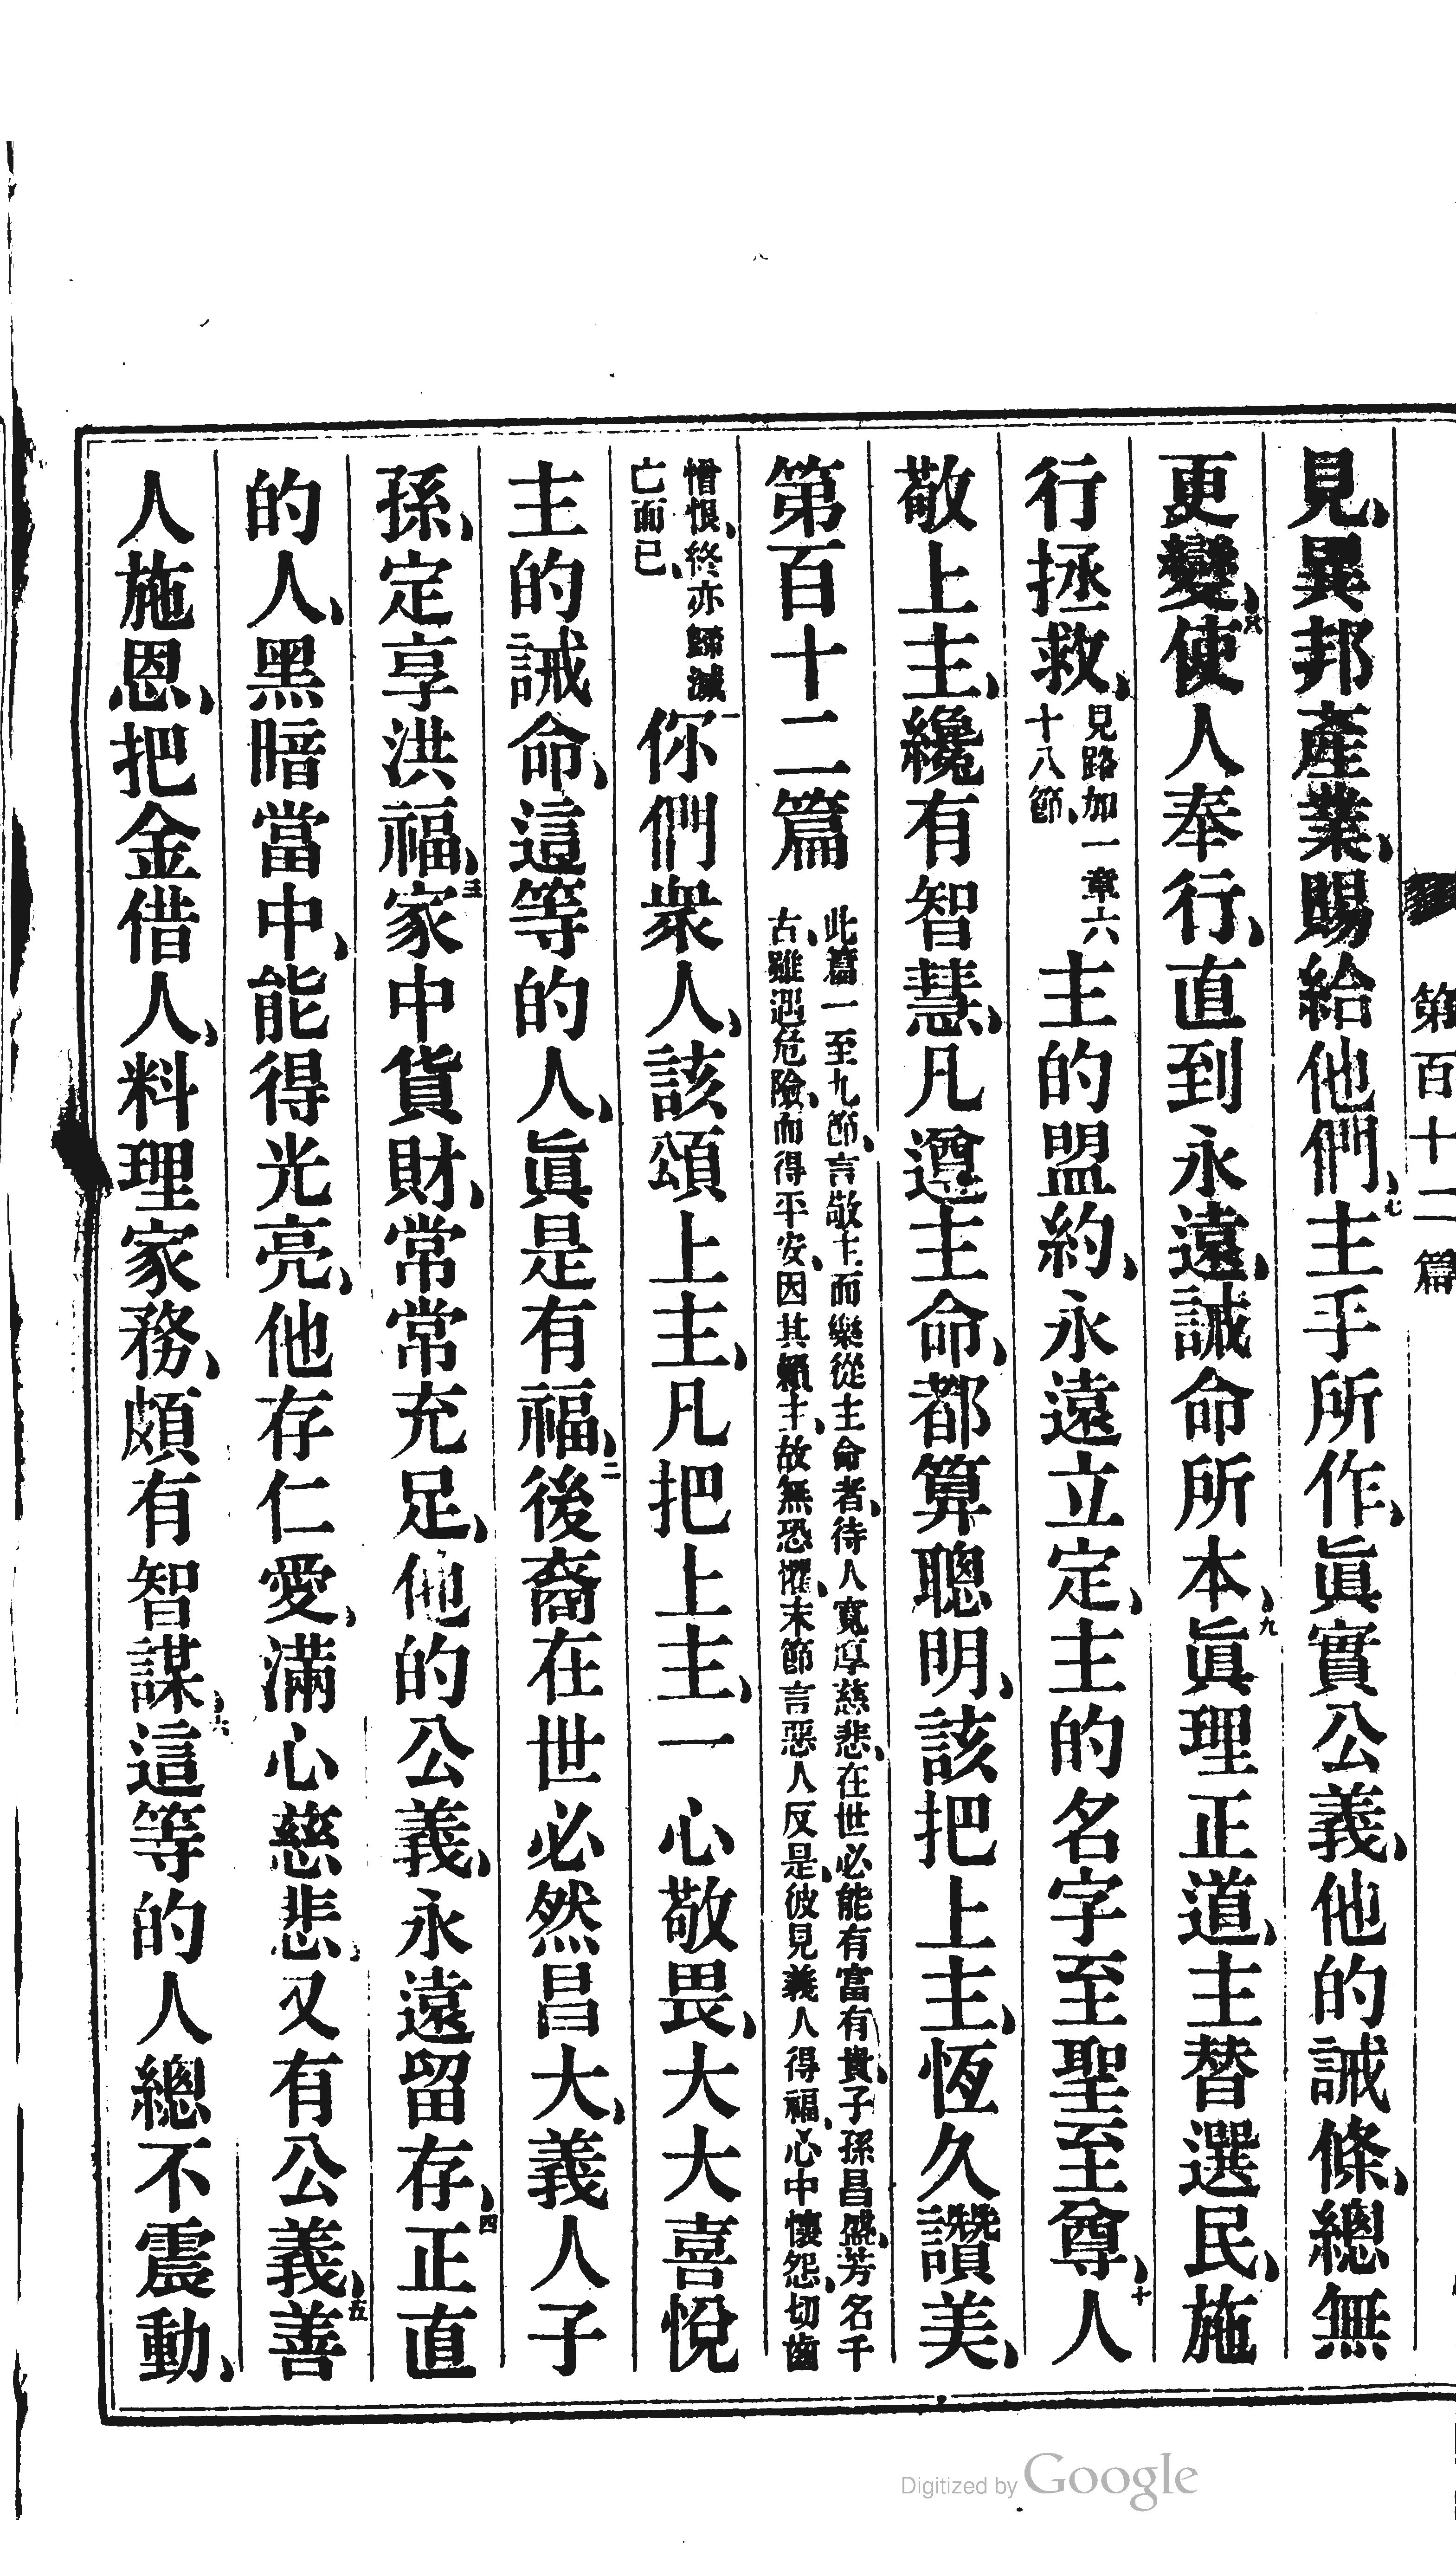 第百十二篇
見、異邦產業、賜給他們、七主手所作、眞實公義、他的誡條、總無
更變、八使人奉行、直到永遠、誡命所本、九眞理正道、主替選民、施
行拯救、見路加一章六十八節、主的盟約、永遠立定、主的名字至聖至尊、十人
敬上主、纔有智慧、凡遵主命、都算聰明、該把上主、恆久讚美、
第百十二篇 此篇一至九節、言敬主而樂從主命者、待人寬厚慈悲、在世必能有富有貴、子孫昌盛、芳名千
古、雖遇危險、而得平安、因其賴主、故無恐懼、末節言惡人反是、彼見義人得福、心中懷怨、切齒
憎恨、終亦歸滅亡而已、一你們衆人、該頌上主、凡把上主、一心敬畏、大大喜悅
主的誡命、這等的人、眞是有福、二後裔在世必然昌大、義人子
孫、定享洪福、三家中貨財、常常充足、他的公義、永遠留存、四正直
的人、黑暗當中、能得光亮、他存仁愛、滿心慈悲、又有公義、五善
人施恩、把金借人、料理家務、頗有智謀、六這等的人總不震動、
Digitized by Google